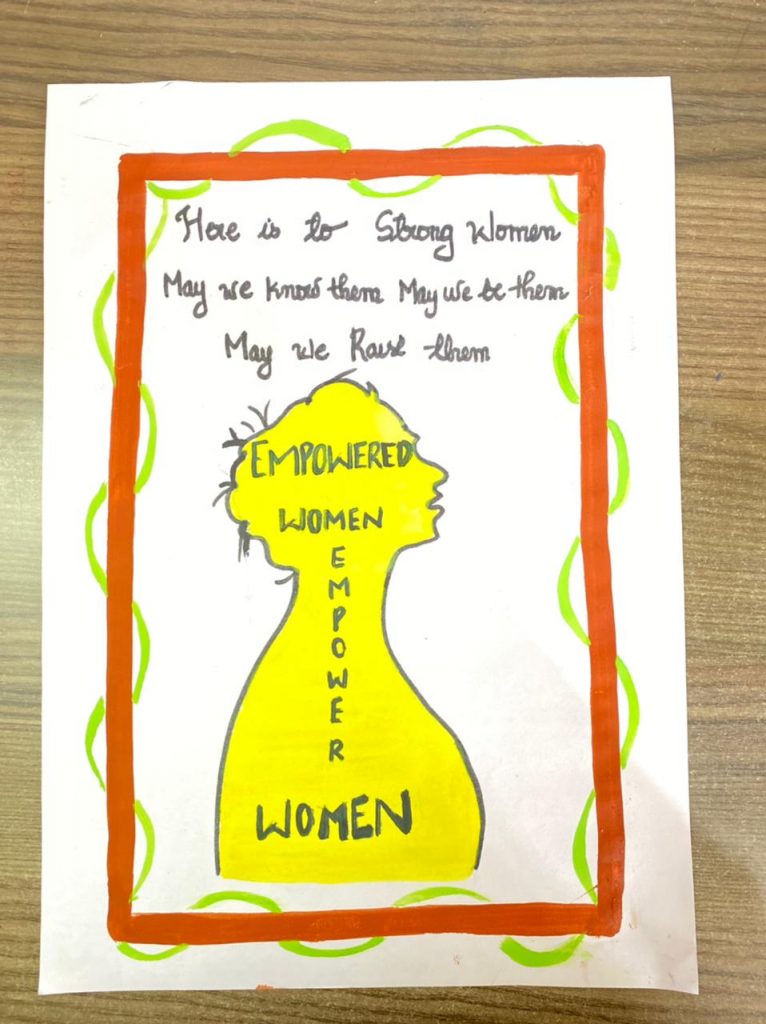 Here is to Strong Women
May we know them May we be them
May we Raise them
EMPOWERED
WOMEN
EMPOWER
WOMEN